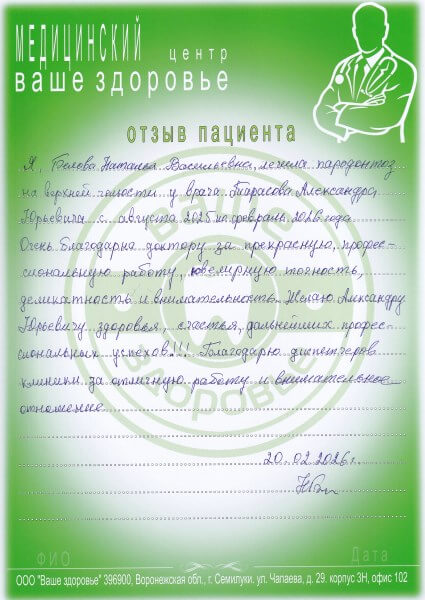 МЕДИЦИНСКИЙ центр
ваше здоровье
отзыв пациента
Я, Белова Наталья Васильевна, лечила пародонтоз
на верхней челюсти у врача Тарасова Александра
Юрьевича с августа 2025 по февраль 2026 года.
Очень благодарна доктору за прекрасную, профес-
сиональную работу, ювелирную точность,
деликатность и внимательность. Желаю Александру
Юрьевичу здоровья, счастья, дальнейших профес-
сиональных успехов!!! Благодарю диспетчеров
клиники за отличную работу и внимательное
отношение.
20.02.2026г.
ФИО Дата
ООО "Ваше здоровье" 396900, Воронежская обл., г. Семилуки. ул. Чапаева, д. 29. корпус 3Н, офис 102
ВАШЕ
ЗДОРОВЬЕ